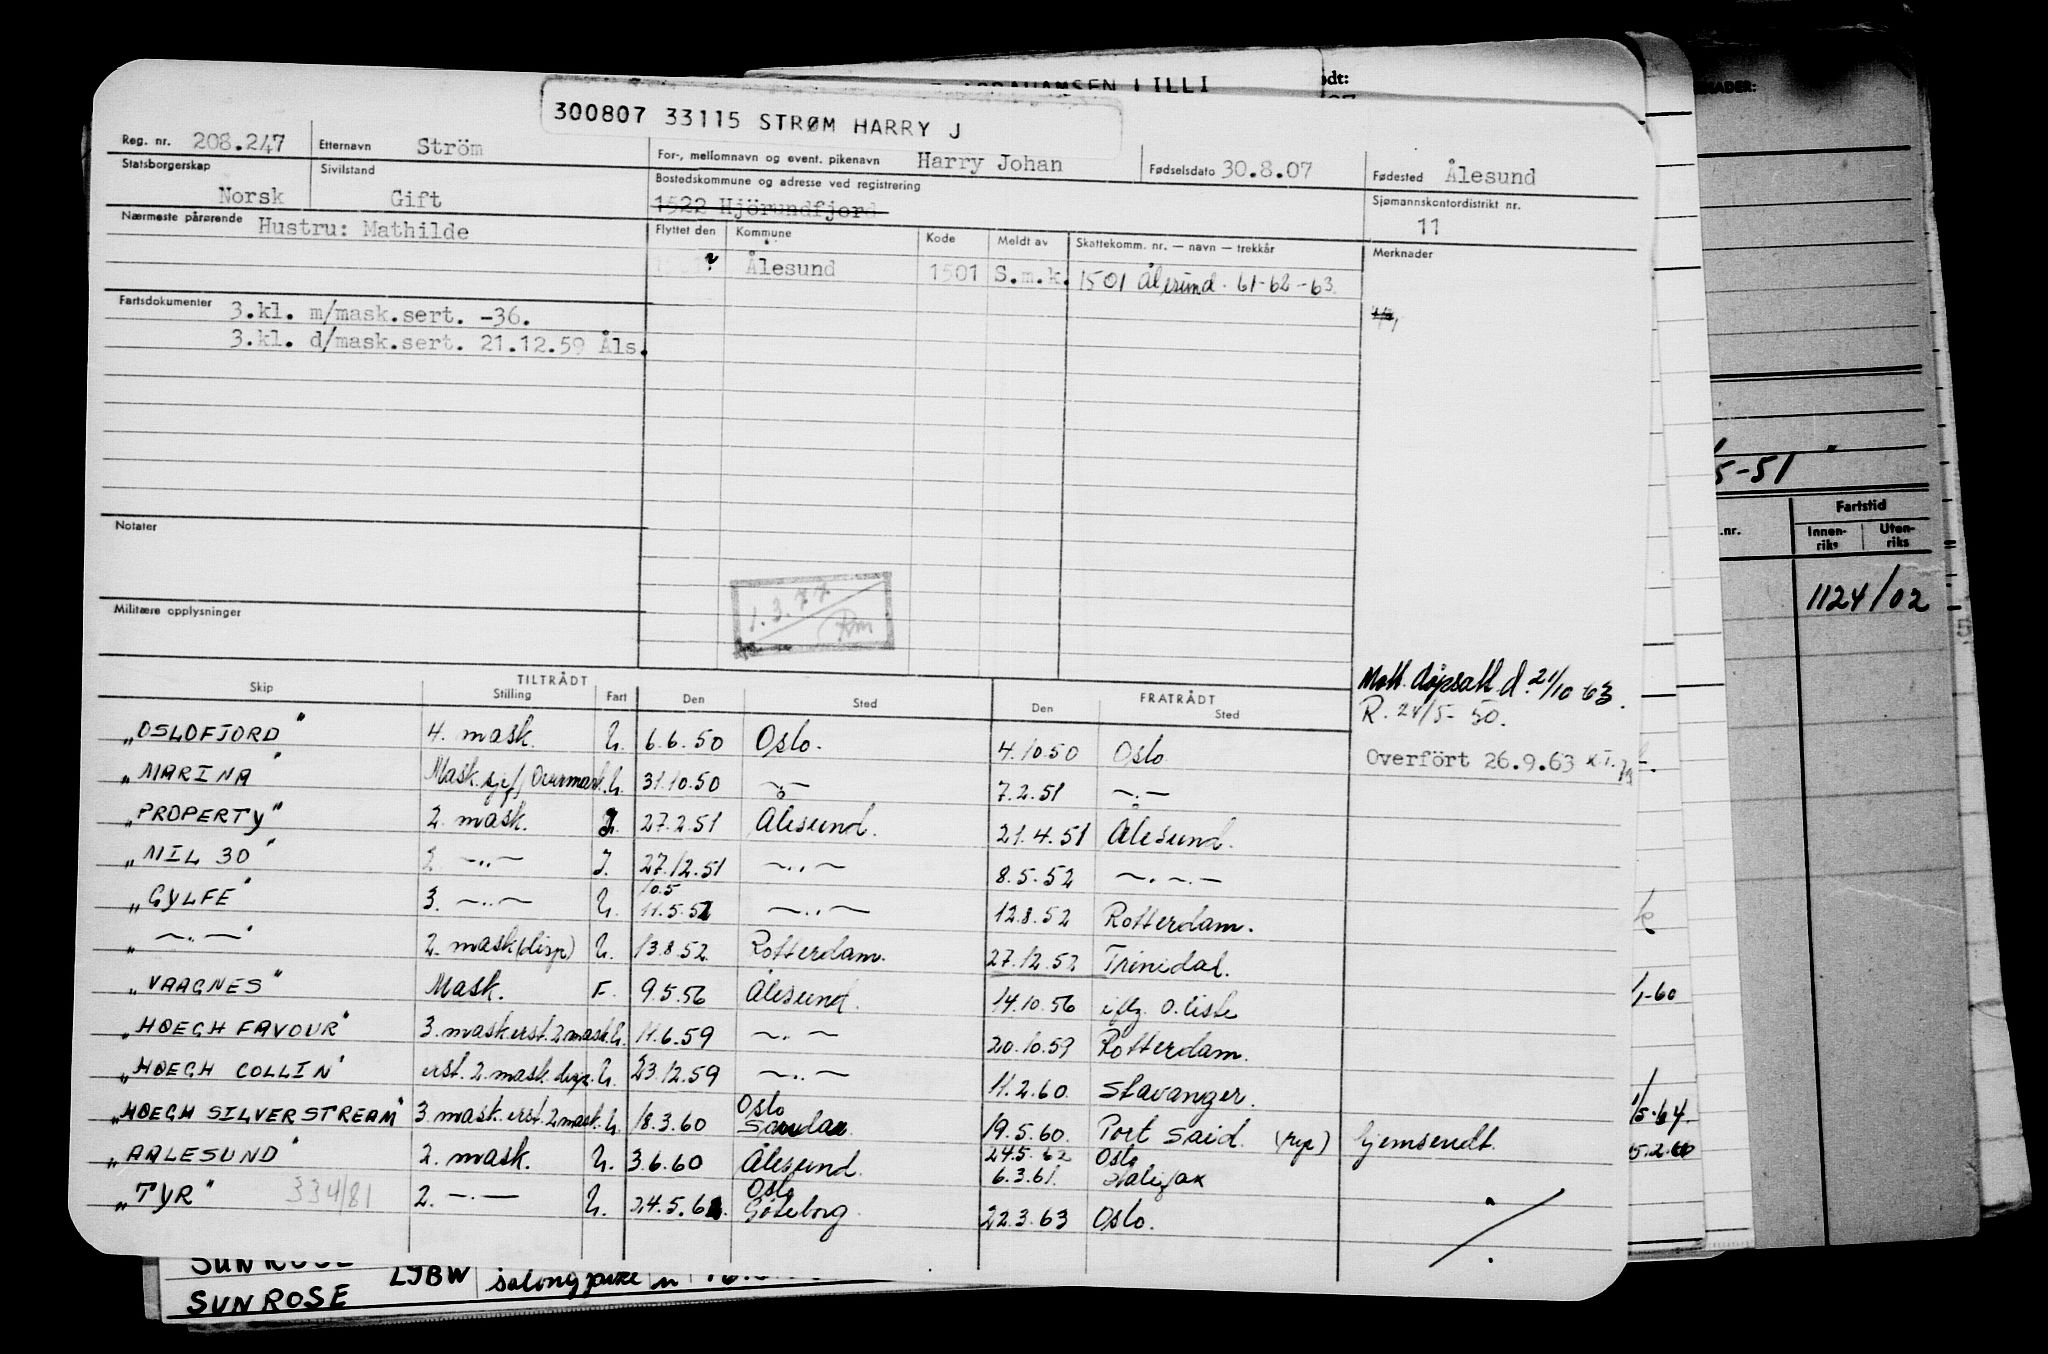 ABRAHAMSEN LILLI
300807 33115 STRØM HARRY J
Reg. nr. 208.247 Etternavn Ström For-, mellomnavn og event. pikenavn Harry Johan Fødselsdato 30.8.07 Fødested Ålesund
Statsborgerskap Norsk Sivilstand Gift Bostedskommune og adresse ved registrering 1522 Hjörundfjord Sjømannskontordistrikt nr. 11
Nærmeste pårørende Hustru: Mathilde Flyttet den Kommune Kode Meldt av Skattekomm. nr. — navn — trekkår Merknader
Ålesund 1501 S.m.k. 1501 Ålesund. 61-62-63
Fartsdokumenter 3.kl. m/mask.sert. -36.
3.kl. d/mask.sert. 21.12.59 Åls.
Notater
Militære opplysninger
1.3.77
Skip TILTRÅDT Stilling Fart Den Sted FRATRÅDT Den Sted
R. 24/5-50.
Overfört 26.9.63
"OSLOFJORD" 4. mask. U. 6.6.50 Oslo. 4.10.50 Oslo
"MARINA" 31.10.50 —"— 7.2.51 —.—
"PROPERTY" 2. mask. 27.2.51 Ålesund. 21.4.51 Ålesund.
"MIL 30" 2 —..— I. 27.12.51 —..— 8.5.52 —.—.—
"GYLFE" 3. —..— U. 10.5 11.5.52 —..— 12.8.52 Rotterdam.
"—.—" 2. mask (disp) U. 13.8.52 Rotterdam. 27.12.52 Trinidad.
"VAAGNES" Mask. F. 9.5.56 Ålesund. 14.10.56 iflg. O.liste
"HØEGH FAVOUR" 3. mask erst. 2 mask. U. 11.6.59 —.— 20.10.59 Rotterdam.
"HØEGH COLLIN" erst. 2. mask disp. U. 23.12.59 —..— 11.2.60 Stavanger.
"HØEGH SILVERSTREAM" 3 mask erst. 2 mask. U. 18.3.60 Oslo 19.5.60. Port Said. hjemsendt.
"AALESUND" 2. mask. U. 3.6.60 Ålesund. 6.3.61. Halifax
"TYR" 334/81 2. —.— U. 24.5.62 Oslo Göteborg 24.5.62 Oslo 22.3.63 Oslo.
5-51
Fartstid
.nr. Innen-riks Uten-riks
1124/02
SUN ROSE
SUN ROSE LJBW